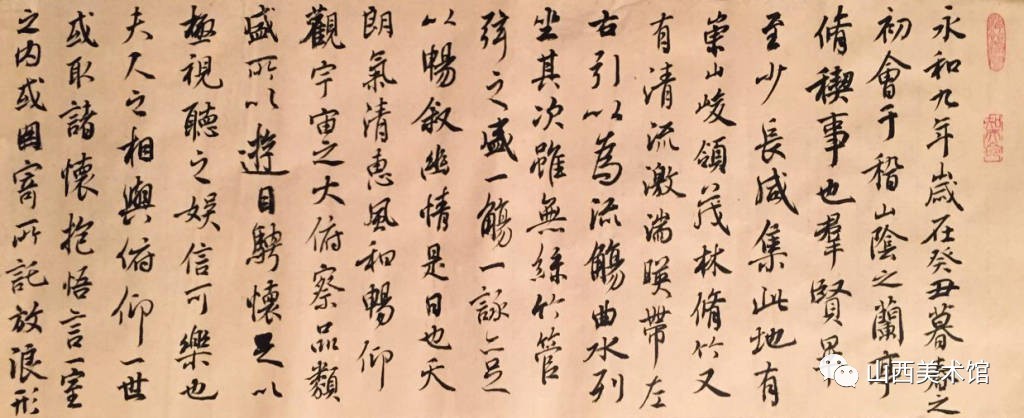 永和九年歲在癸丑暮春之
初會于稽山陰之蘭亭
脩禊事也羣賢畢
至少長咸集此地有
崇山峻領茂林脩竹又
有清流激湍暎帶左
右引以為流觴曲水列
坐其次雖無絲竹管
弦之盛一觴一詠亦足
以暢叙幽情是日也天
朗氣清惠風和暢仰
觀宇宙之大俯察品類
盛所以遊目騁懷足以
極視聽之娛信可樂也
夫人之相與俯仰一世
或取諸懷抱悟言一室
之內或因寄所託放浪形
山西美术馆